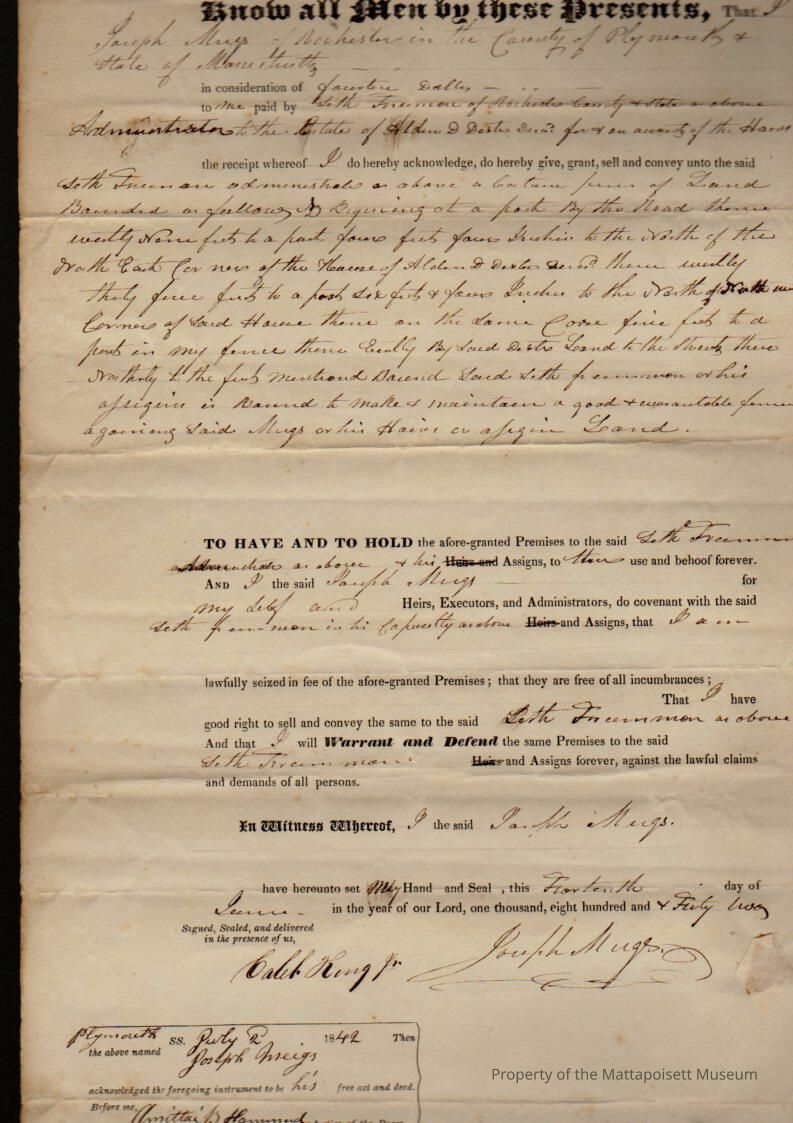 Know all Men by these Presents, That I
Joseph Meigs of Rochester in the County of Plymouth &
State of
in consideration of fourteen
to me paid by Seth Freeman of Rochester County & State as above
Administrator to the Estate of Alden D Dexter for & on of the Haires
the receipt whereof I do hereby acknowledge, do hereby give, grant, sell and convey unto the said
Seth Freeman as above a Certain of Land
Bounded as follows Begining at a post By the Road thence
westly feet to a post four feet four Inches to the North of the
North East Corner of the House of Alden D Dexter thence westly
five feet to a post six feet & four Inches to the North of North
Corner of Said House thence on the Same Corse five feet to a
post in my fence thence By Said Land to the Street thence
Northerly to the first Said Seth or his
is Bound to make & maintain a good &
Said Meigs or his Haires or Land.
TO HAVE AND TO HOLD the afore-granted Premises to the said Seth Freeman
as above & his Heirs and Assigns, to use and behoof forever.
AND I the said Joseph Meigs for
my Self and Heirs, Executors, and Administrators, do covenant with the said
Seth in his as above Heirs and Assigns, that I am
lawfully seized in fee of the afore-granted Premises; that they are free of all incumbrances;
That I have
good right to sell and convey the same to the said Seth as above
And that I will Warrant and Defend the same Premises to the said
Seth Heirs and Assigns forever, against the lawful claims
and demands of all persons.
In Witness Whereof, I the said Joseph Meigs.
have hereunto set My Hand and Seal, this day of
in the year of our Lord, one thousand, eight hundred and & two
Signed, Sealed, and delivered
in the presence of us,
Caleb King Jr
Joseph Meigs
Plymouth SS. July 2 1842 Then
the above named Joseph Meigs
acknowledged the foregoing instrument to be his free act and deed.
Before me, Amittai B Hammond
Property of the Mattapoisett Museum